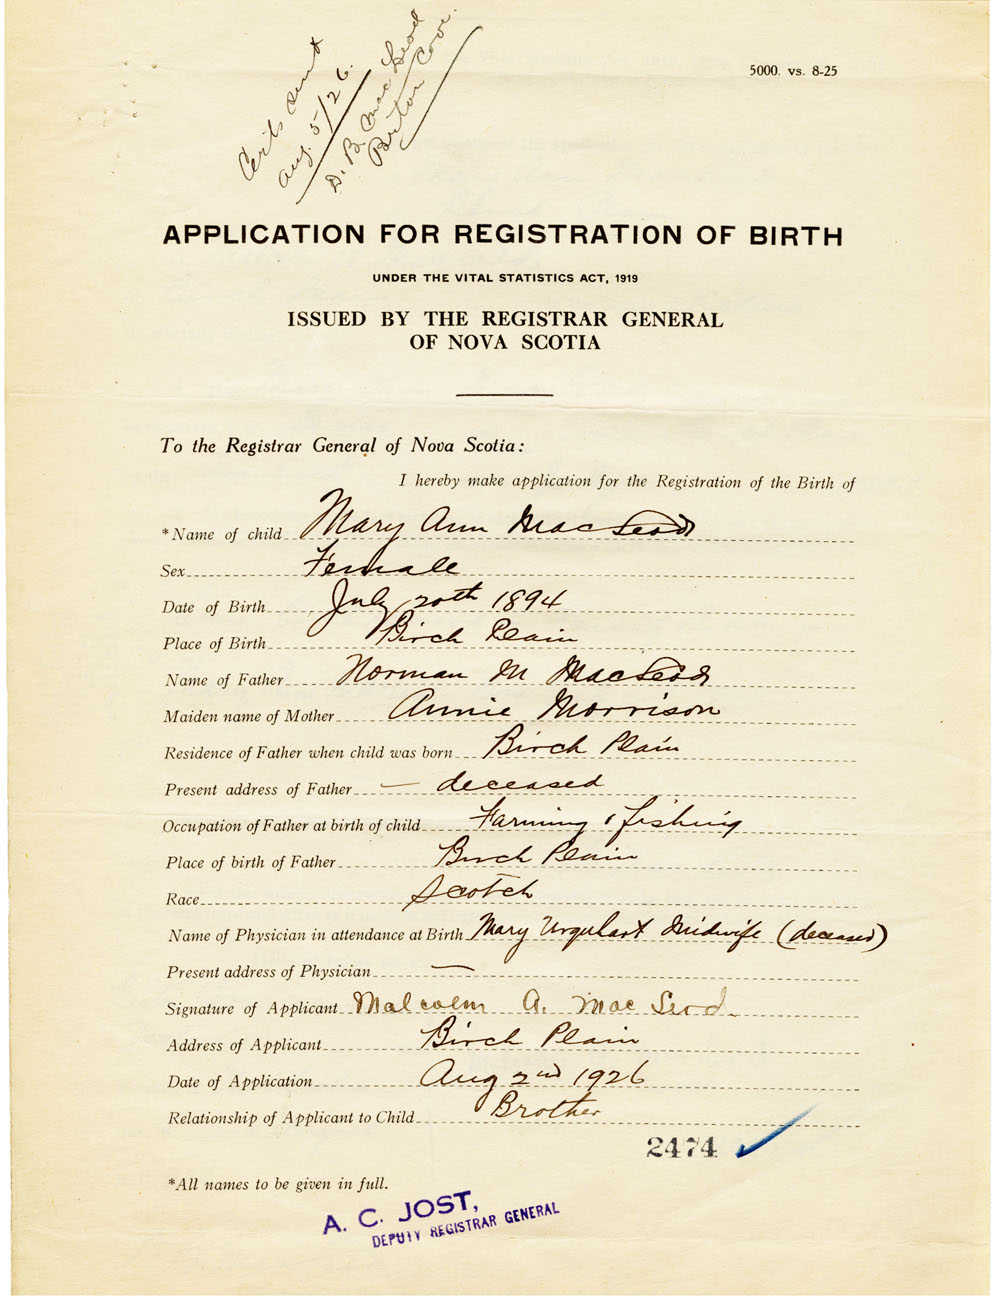 Certs sent
Aug. 5/26.
D. B. MacLeod
Breton Cove.
5000. vs. 8-25
APPLICATION FOR REGISTRATION OF BIRTH
UNDER THE VITAL STATISTICS ACT, 1919
ISSUED BY THE REGISTRAR GENERAL
OF NOVA SCOTIA
To the Registrar General of Nova Scotia:
I hereby make application for the Registration of the Birth of
*Name of child Mary Ann MacLeod
Sex Female
Date of Birth July 20th 1894
Place of Birth Birch Plain
Name of Father Norman M MacLeod
Maiden name of Mother Annie Morrison
Residence of Father when child was born Birch Plain
Present address of Father — deceased
Occupation of Father at birth of child Farming & fishing
Place of birth of Father Birch Plain
Race Scotch
Name of Physician in attendance at Birth Mary Urquhart Midwife (deceased)
Present address of Physician —
Signature of Applicant Malcolm A. MacLeod
Address of Applicant Birch Plain
Date of Application Aug 2nd 1926
Relationship of Applicant to Child Brother
2474
*All names to be given in full.
A. C. JOST,
DEPUTY REGISTRAR GENERAL